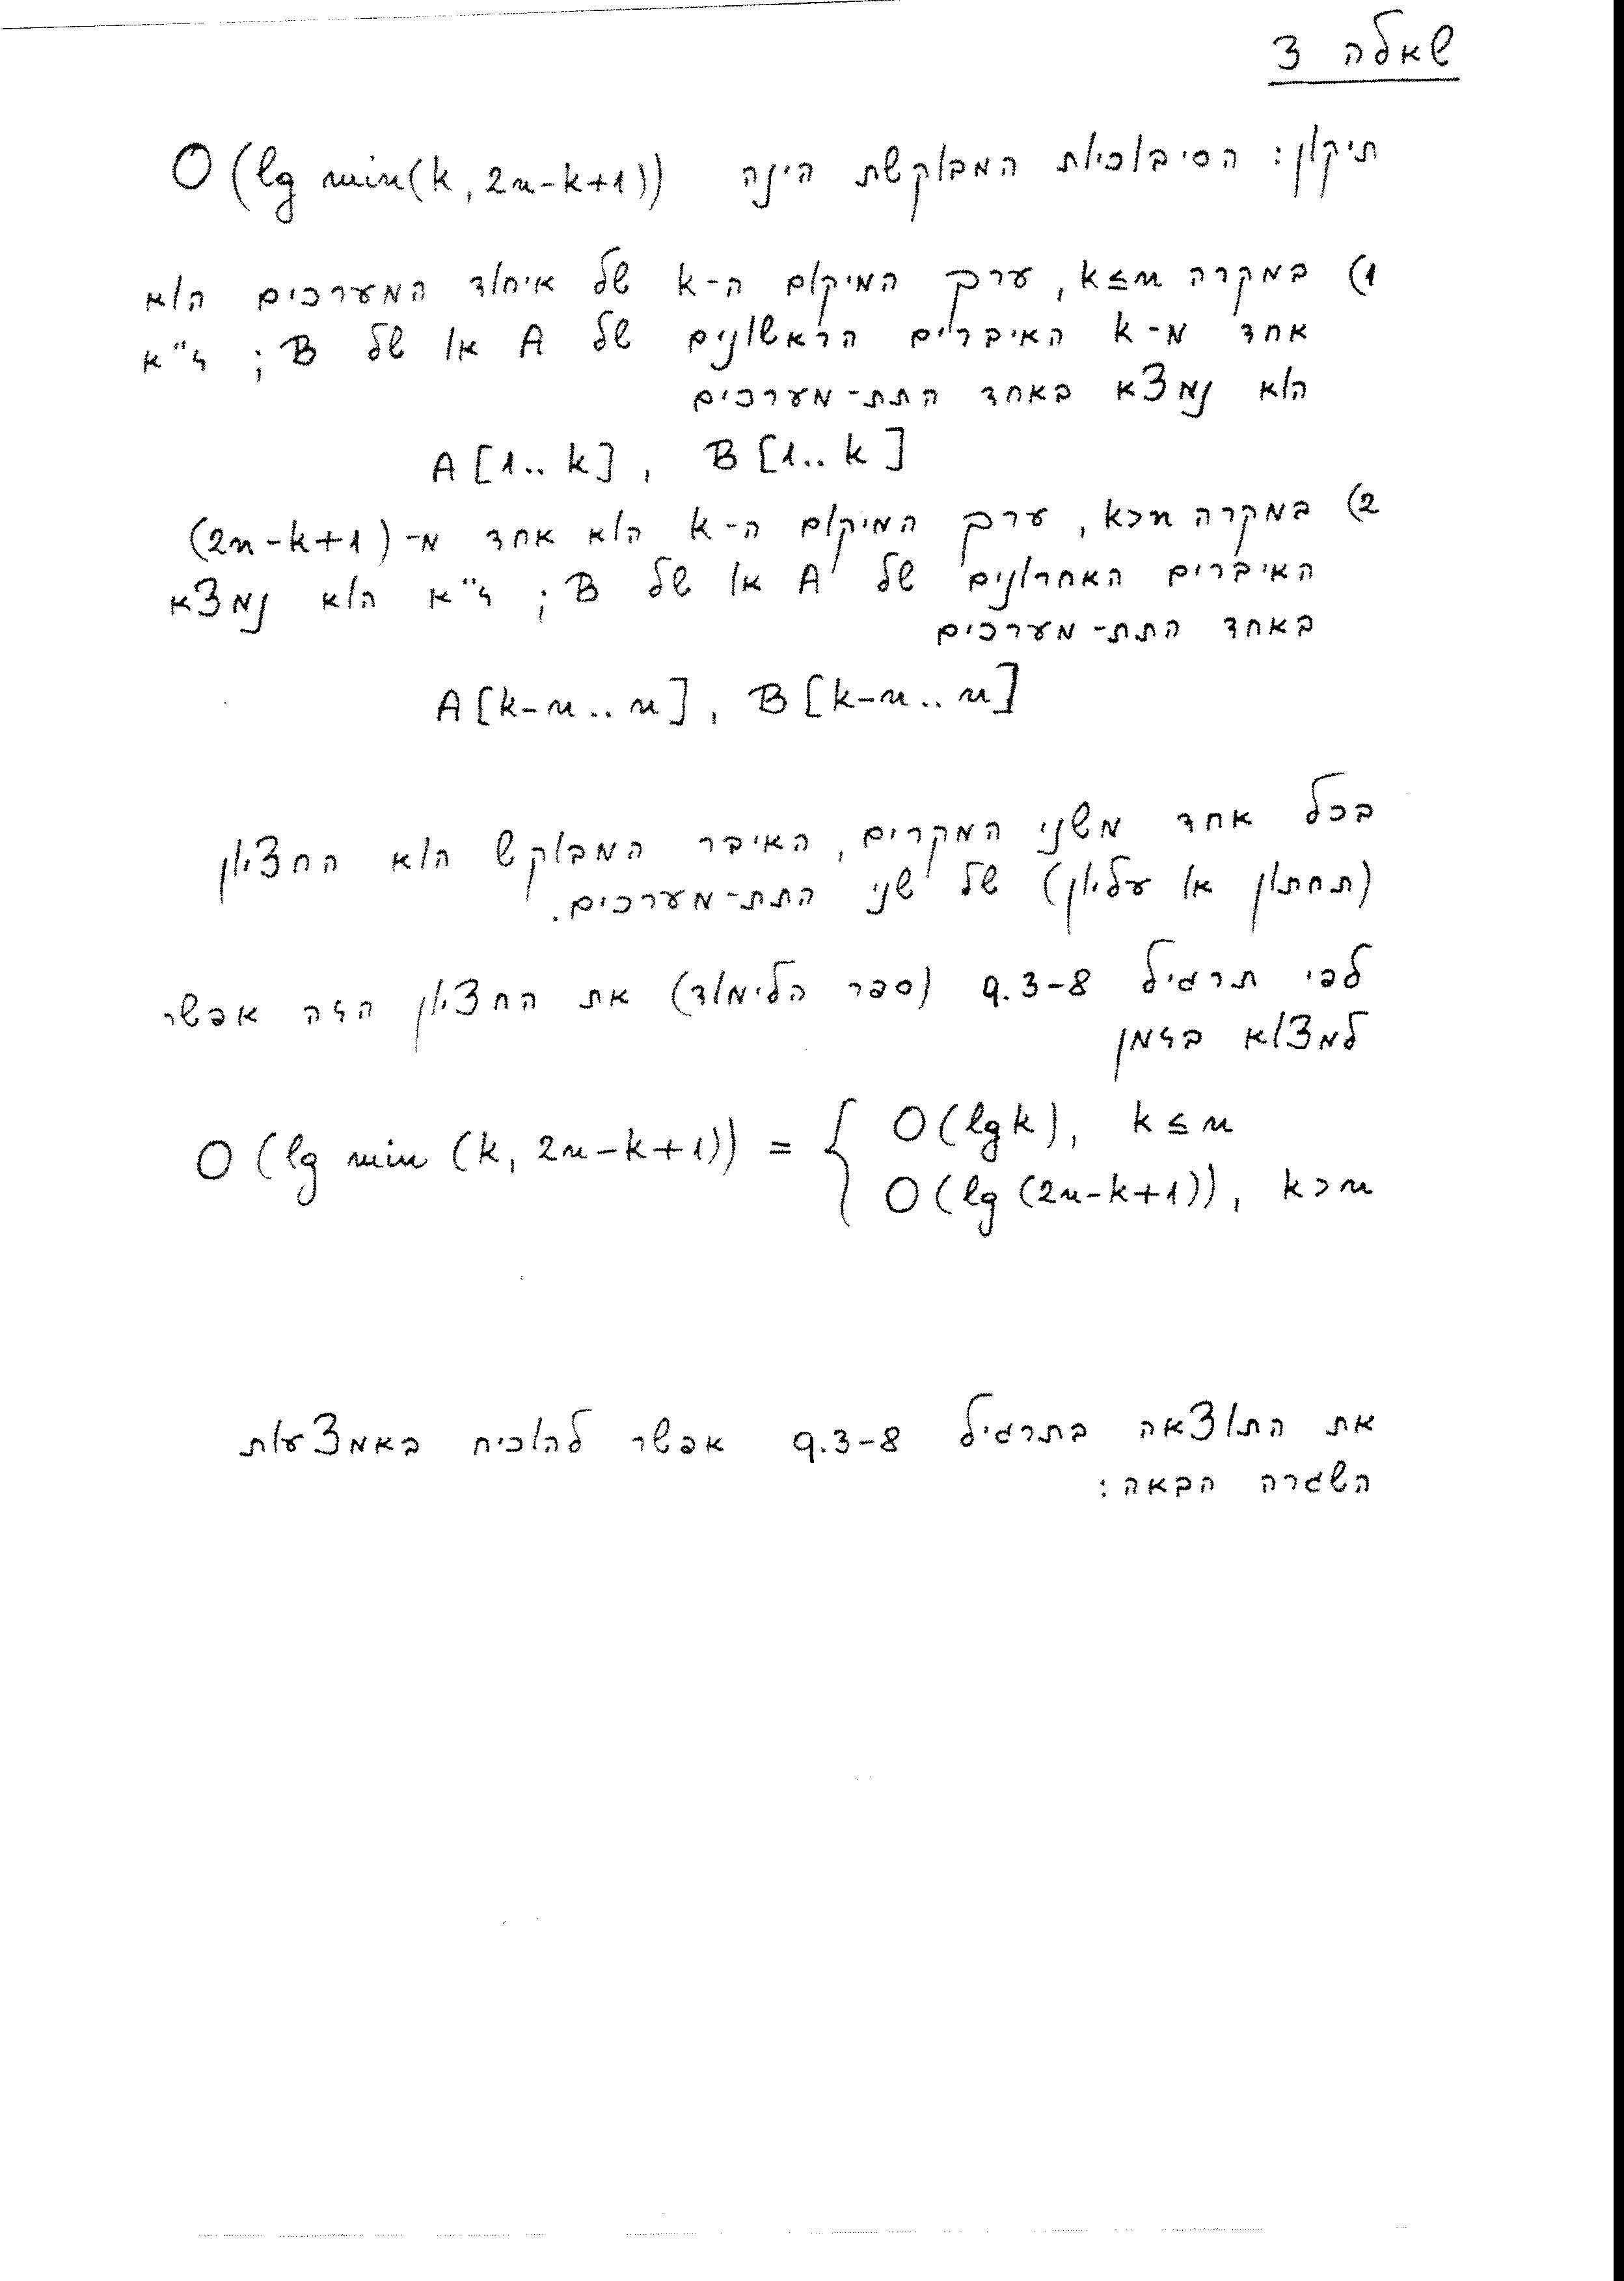 שאלה 3
תיקון: הסיבוכיות המבוקשת הינה O(lg min(k, 2n-k+1))
1) במקרה k≤n, ערך המיקום ה-k של איחוד המערכים הוא
אחד מ-k האיברים הראשונים של A או של B; ז"א
הוא נמצא באחד התת-מערכים
A[1..k], B[1..k]
2) במקרה k>n, ערך המיקום ה-k הוא אחד מ-(2n-k+1)
האיברים האחרונים של A או של B; ז"א הוא נמצא
באחד התת-מערכים
A[k-n..n], B[k-n..n]
בכל אחד משני המקרים, האיבר המבוקש הוא החציון
(תחתון או עליון) של שני התת-מערכים.
לפי תרגיל 9.3-8 (ספר הלימוד) את החציון הזה אפשר
למצוא בזמן
O(lg min(k, 2n-k+1)) = { O(lg k), k≤n
O(lg(2n-k+1)), k>n
את התוצאה בתרגיל 9.3-8 אפשר להוכיח באמצעות
השגרה הבאה: